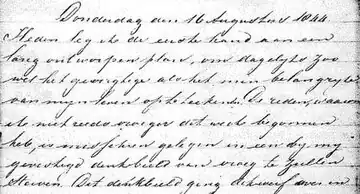 Donderdag den 16 Augustus 1844
Heden leg ik de eerste hand aan een
lang ontworpen plan, om dagelijks zoo
wel het gewigtige als het min belangrijke
van mijn leven op te teekenen. De reden, waarom
ik niet reeds vroeger dit werk begonnen
heb, is misschien gelegen in een bij mij
gevestigd denkbeeld van vroeg te zullen
sterven. Dat denkbeeld ging dikwijls over in